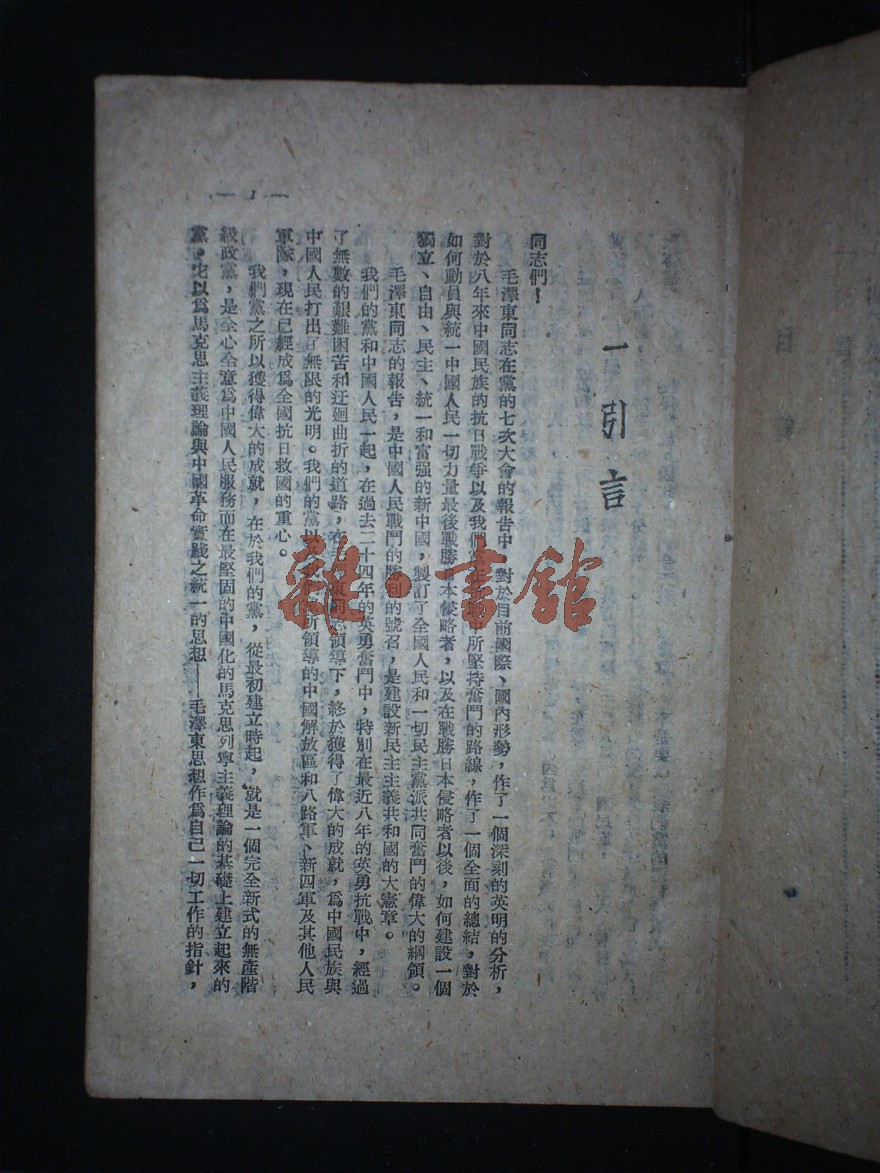 一 引言
同志們！
毛澤東同志在黨的七次大會的報告中，對於目前國際、國內形勢，作了一個深刻的英明的分析，
對於八年來中國民族的抗日戰爭以及我們黨在抗戰中所堅持奮鬥的路線，作了一個全面的總結，對於
如何動員與統一中國人民一切力量最後戰勝日本侵略者，以及在戰勝日本侵略者以後，如何建設一個
獨立、自由、民主、統一和富强的新中國，製訂了全國人民和一切民主黨派共同奮鬥的偉大的綱領。
毛澤東同志的報告，是中國人民戰鬥的勝利的號召，是建設新民主主義共和國的大憲章。
我們的黨和中國人民一起，在過去二十四年的英勇奮鬥中，特別在最近八年的英勇抗戰中，經過
了無數的艱難困苦和迂廻曲折的道路，在毛澤東同志領導下，終於獲得了偉大的成就，爲中國民族與
中國人民打出了無限的光明。我們的黨以及我們黨所領導的中國解放區和八路軍、新四軍及其他人民
軍隊，現在已經成爲全國抗日救國的重心。
我們黨之所以獲得偉大的成就，在於我們的黨，從最初建立時起，就是一個完全新式的無產階
級政黨，是全心全意爲中國人民服務而在最堅固的中國化的馬克思列寧主義理論的基礎上建立起來的
黨。它以爲馬克思主義理論與中國革命實踐之統一的思想——毛澤東思想作爲自己一切工作的指針，
— 1 —
雜·書館